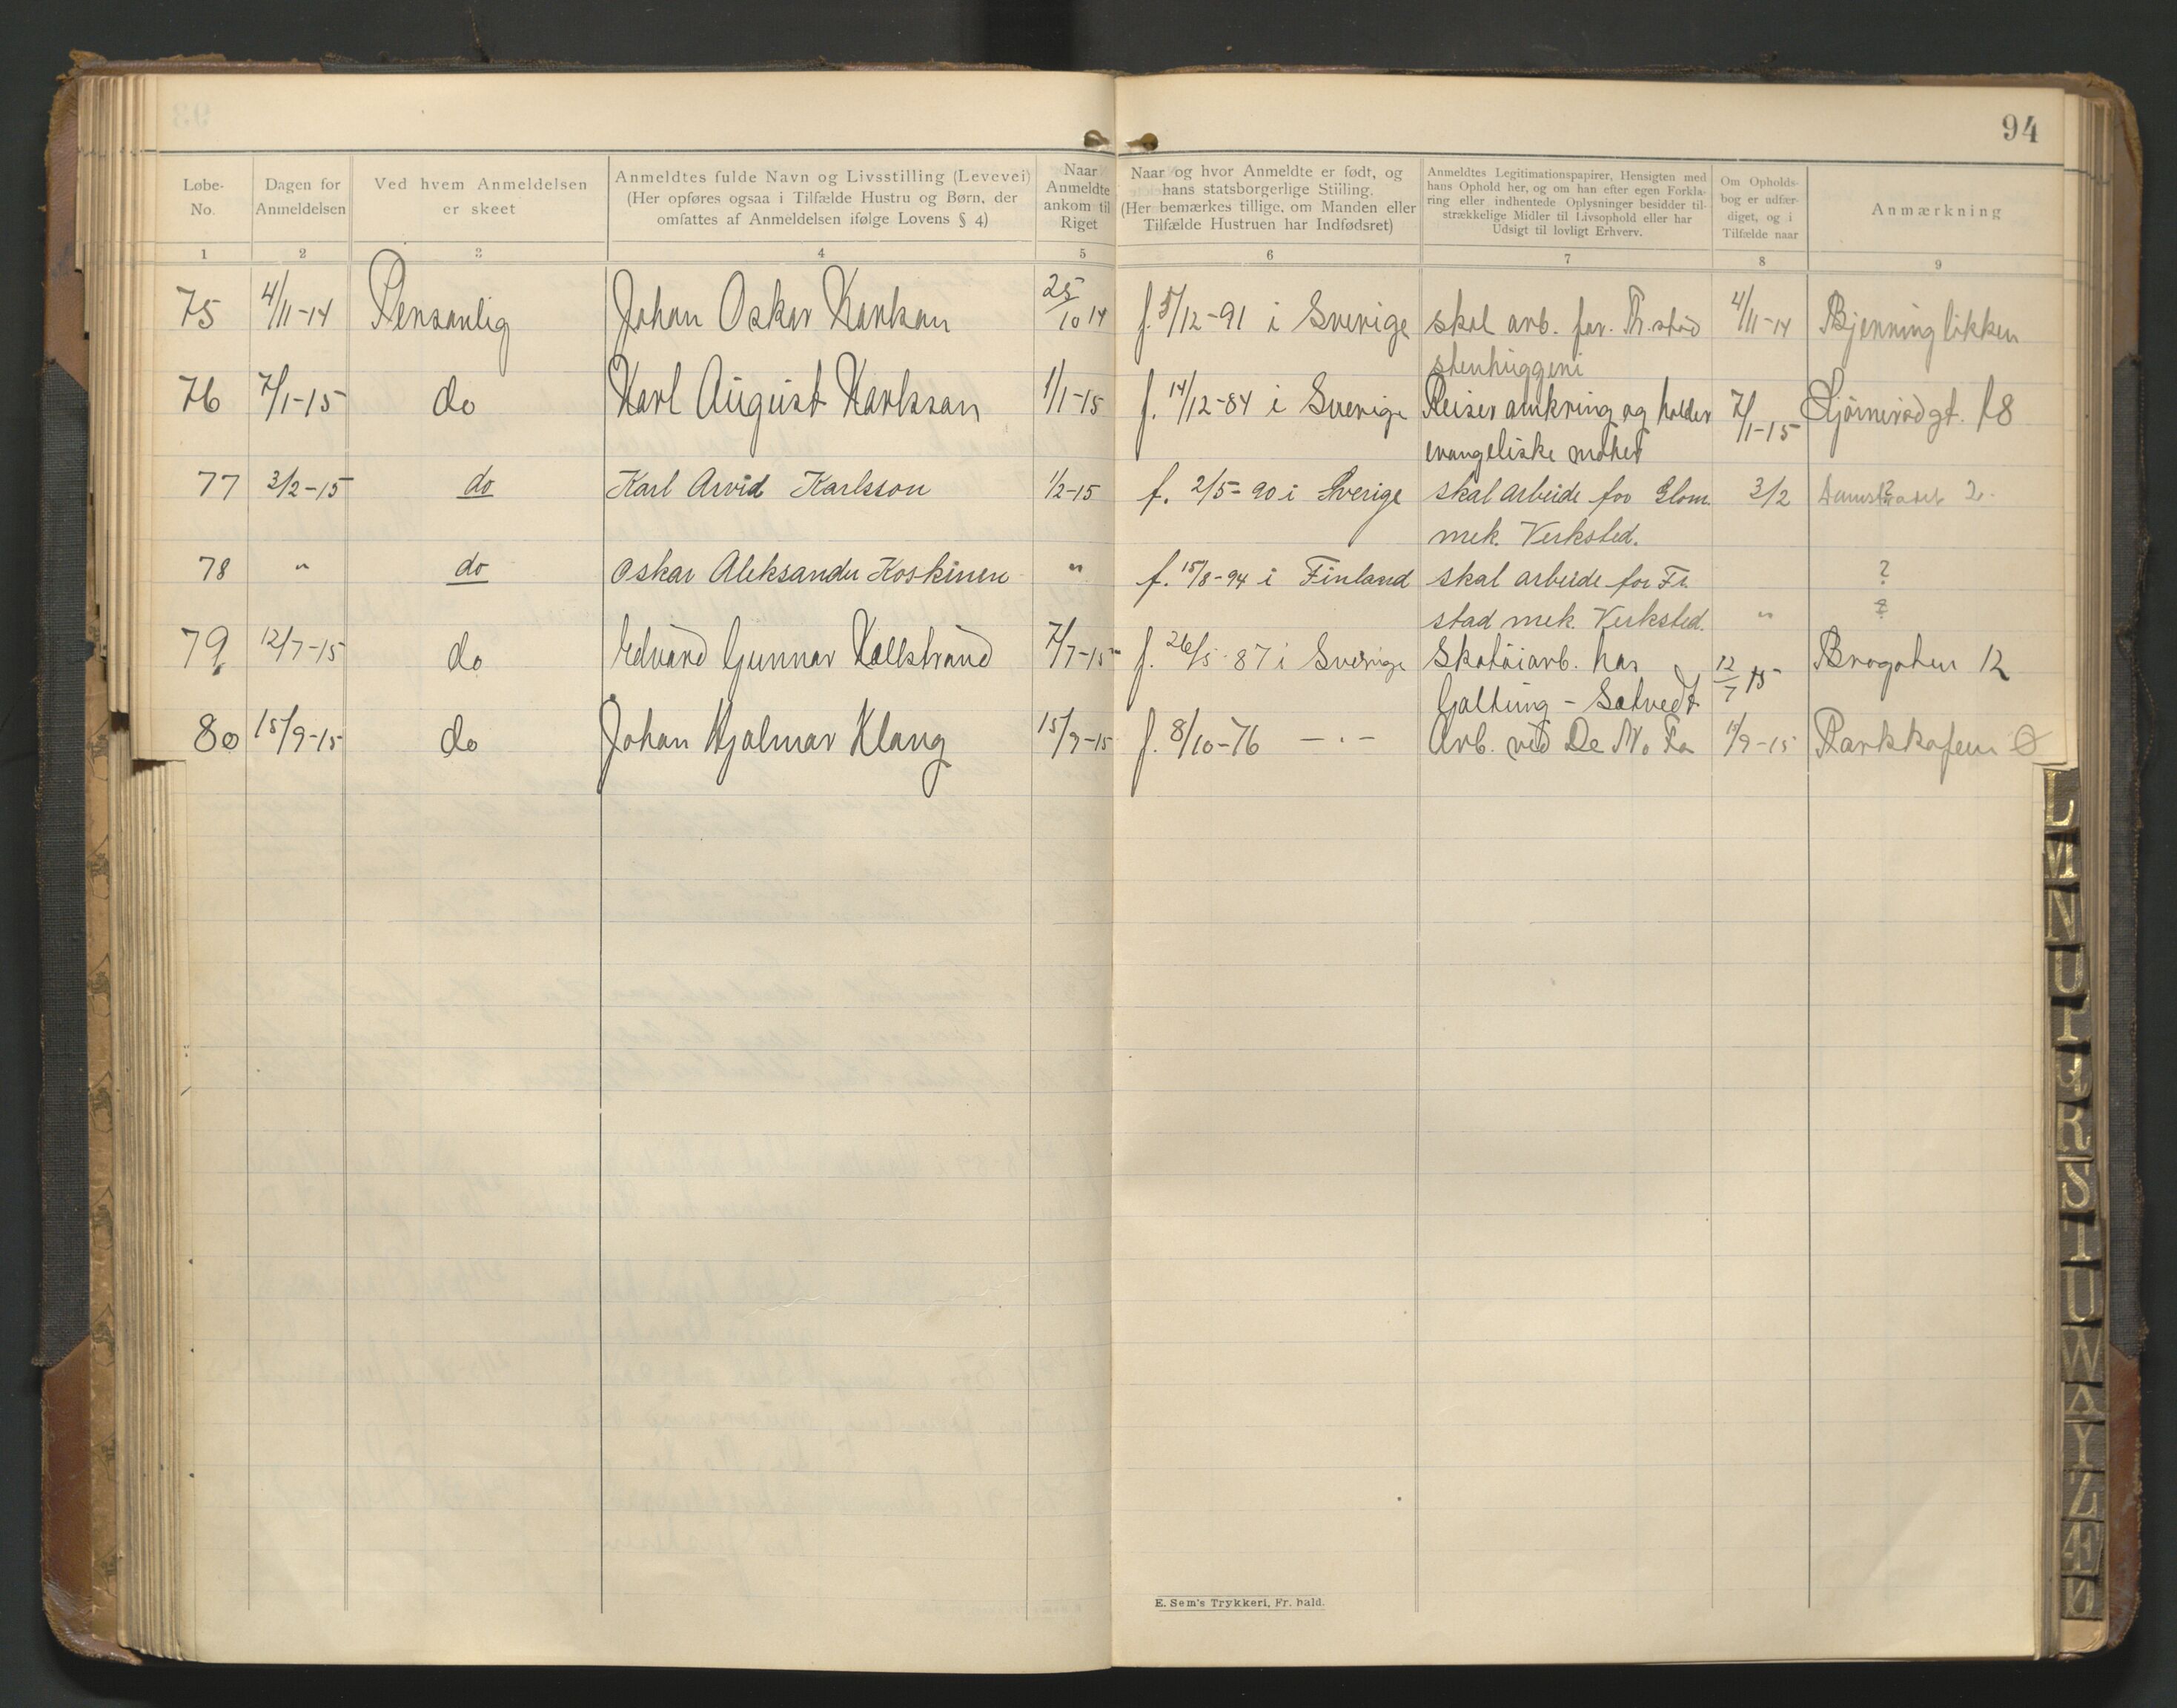 94
Løbe-
No.
Dagen for
Anmeldelsen
Ved hvem Anmeldelsen
er skeet
Anmeldtes fulde Navn og Livsstilling (Levevei)
(Her opføres ogsaa i Tilfælde Hustru og Børn, der
omfattes af Anmeldelsen ifølge Lovens § 4)
Naar
Anmeldte
ankom til
Riget
Naar og hvor Anmeldte er født, og
hans statsborgerlige Stiiling.
(Her bemærkes tillige, om Manden eller
Tilfælde Hustruen har Indfødsret)
Anmeldtes Legitimationspapirer, Hensigten med
hans Ophold her, og om han efter egen Forkla-
ring eller indhentede Oplysninger besidder til-
strækkelige Midler til Livsophold eller har
Udsigt til lovligt Erhverv.
Om Opholds-
bog er udfær-
diget, og i
Tilfælde naar
Anmærkning
1 2 3 4 5 6 7 8 9
75 4/11-14 Personlig Johan Oskar Karlson 25/10 14 f. 5/12-91 i Sverige skal arb. for. Fr.stad 4/11-14 Bjenningløkken
stenhuggeri
76 7/1-15 do Karl August Karlsson 1/1-15 f. 14/12-84 i Sverige Reiser omkring og holder 7/1-15 18
evangeliske møter
77 3/2-15 do Karl Arvid Karlsson 1/2-15 f. 2/5-90 i Sverige skal arbeide for Glom. 3/2 2.
mek. Verksted.
78 " do Oskar Aleksander Koskinen " f. 15/8-94 i Finland skal arbeide for Fr. ?
stad mek. Verksted. "
79 12/7-15 do Edvard Gunnar Kallstrand 7/7-15 f. 26/5-87 i Sverige Skotøiarb. hos 12/7 15 Brogaten 12
Galtung - Sætvedt
80 15/9-15 do Johan Hjalmar Klang 15/9-15 f. 8/10-76 - . - Arb. ved De No Fa Parkkafeen Ø
L
M
N
O
P
Q
R
S
T
U
W
A
Y
Z
Æ
Ø
E. Sem's Trykkeri, Fr. hald.